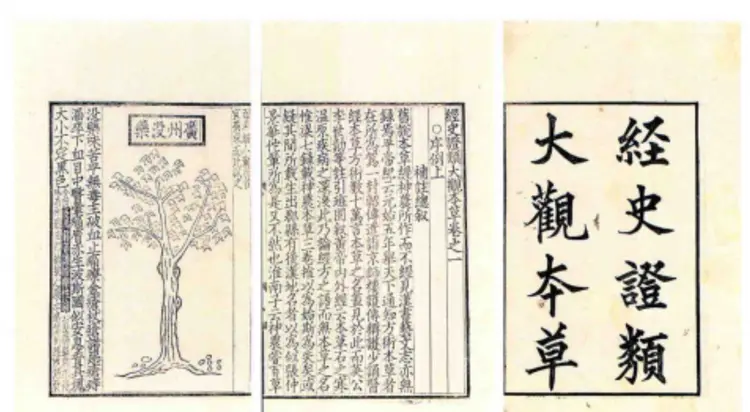 経史證類
大觀本草
經史證類大觀本草卷之一
○序例上
補註總叙
舊說本草經神農所作而不經見漢書藝文志亦無
錄焉平帝紀云元始五年舉天下通知方術本草者
在所為駕一封軺傳遣詣京師樓護傳稱護少誦醫
經本草方術數十萬言本草之名蓋見於此而英公
李世勣等註引班固叙黃帝內外經云本草石之寒
溫原疾病之深淺此乃論經方之語而無本草之名
惟梁七錄載神農本草三卷推以為始斯為失矣或
疑其間所載生出郡縣有後漢地名者以為似張仲
景華佗輩所為是又不然也淮南子云神農嘗百草
廣州没藥
没藥味苦平無毒主破血止痛療金瘡杖瘡諸惡瘡痔
漏卒下血目中瞖暈痛膚赤生波斯國似安息香其塊
大小不定黑色